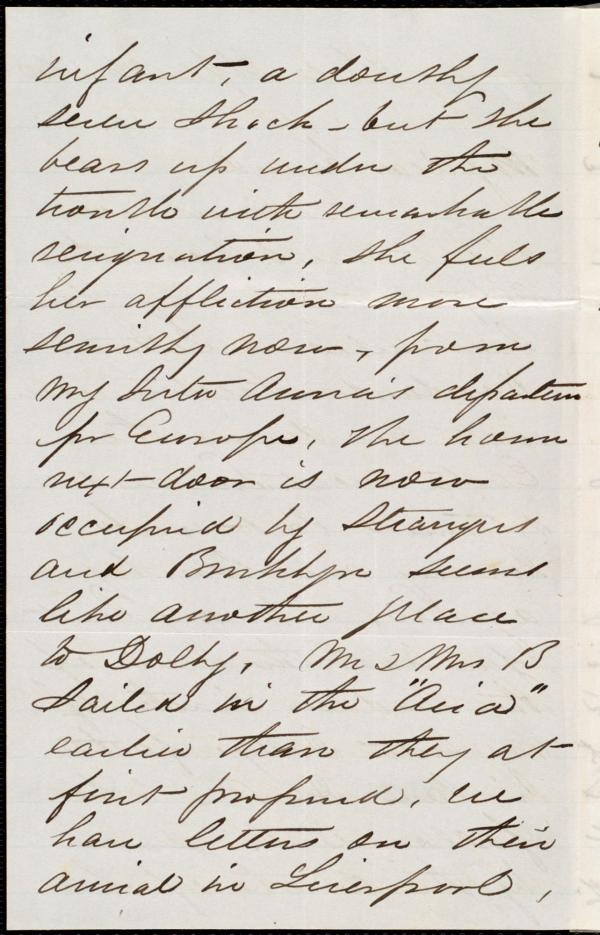 infant, a doubly
severe shock - but she
bears up under the
trouble with remarkable
resignation, she feels
her affliction more
sensibly now, from
my Sister Anna's departure
for Europe, the house
next-door is now
occupied by strangers
and Brooklyn seems
like another place
to Dolby, Mr & Mrs B
sailed in the "Asia"
earlier than they at
first proposed, we
have letters on their
arrival in Liverpool,